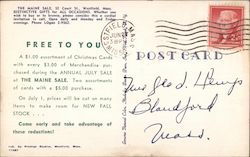 THE MAINE SALE, 52 Court St., Westfield, Mass.
DISTINCTIVE GIFTS for ALL OCCASIONS. Whether you
wish to buy or to browse, please consider this a cordial
invitation to call. Open daily and Sunday and Friday
evenings. Phone LOgan 2-9067.
FREE TO YOU
A $1.00 assortment of Christmas Cards
with every $3.00 of Merchandise pur-
chased during the ANNUAL JULY SALE
at THE MAINE SALE. Two assortments of
cards with a $5.00 purchase.
On July 1, prices will be cut on many
items to make room for NEW FALL
STOCK . . .
Come early and take advantage of
these reductions!
WESTFIELD, MASS.
JUN
POST CARD
Mrs Geo. L. Hemys
Blandford
Mass.